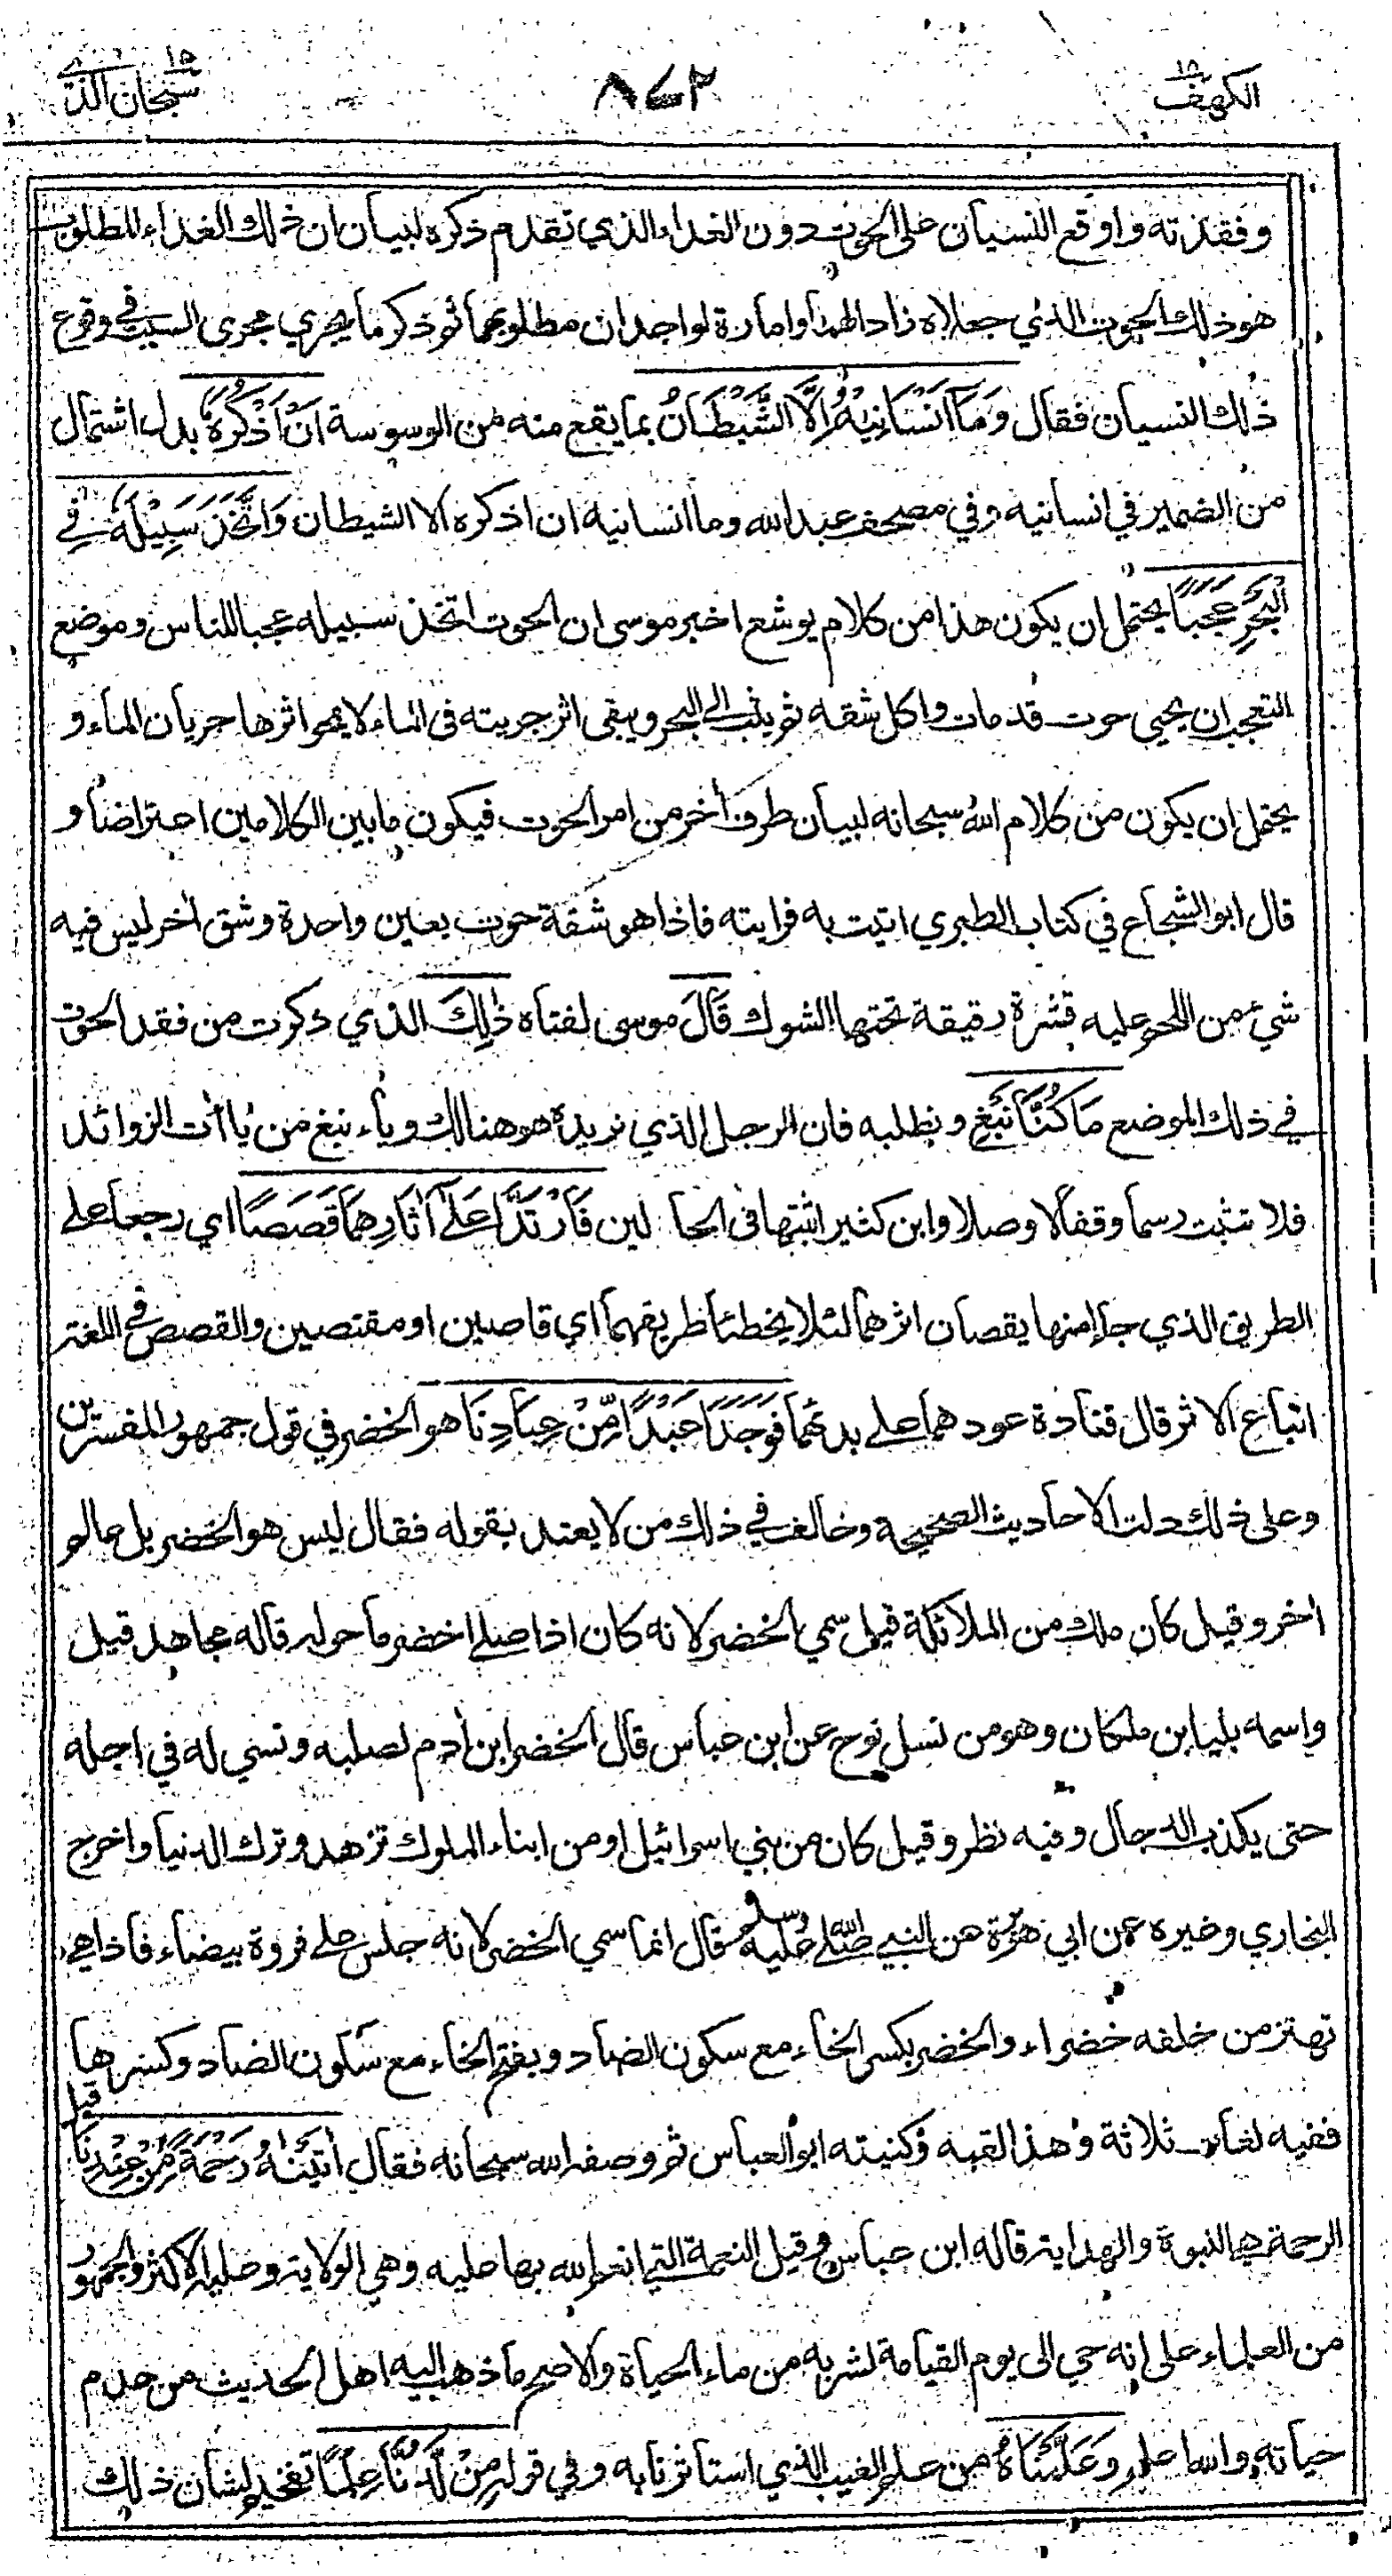 الكهف ١٨
٨٧٢
سبحان الذي ١٥
وفقدته واوقع النسيان على الحوت دون الغداء الذي تقدم ذكره لبيان ان ذلك الغداء المطلوب
هو ذلك الحوت الذي جعلاه زادا لهما وامارة لوجدان مطلوبهما ثم ذكر ما يجري مجرى السبب في وقوع
ذلك النسيان فقال وَمَا أَنْسَانِيهُ إِلَّا الشَّيْطَانُ بما يقع منه من الوسوسة اَنْ اَذْكُرَهُ بدل اشتمال
من الضمير في انسانيه وفي مصحف عبد الله وما انسانيه ان اذكره الا الشيطان وَاتَّخَذَ سَبِيْلَهُ فِي
الْبَحْرِ عَجَبًا يحتمل ان يكون هذا من كلام يوشع اخبر موسى ان الحوت اتخذ سبيله عجبا للناس وموضع
التعجب ان يحيى حوت قد مات واكل شقه ثم يثب الى البحر ويبقى اثر جريته في الماء لا يمحو اثرها جريان الماء و
يحتمل ان يكون من كلام الله سبحانه لبيان طرف أخر من امر الحوت فيكون ما بين الكلامين اعتراضا و
قال ابو الشجاع في كتاب الطبري اتيت به فرايته فاذا هو شقة حوت بعين واحدة وشق أخر ليس فيه
شيء من اللحم عليه قشرة رقيقة تحتها الشوك قَالَ موسى لفتاه ذٰلِكَ الذي ذكرت من فقد الحوت
في ذلك الموضع مَا كُنَّا نَبْغِ ونطلبه فان الرجل الذي نريده هو هنالك وياء نبغ من ياأت الزوائد
فلا تثبت رسما وقفا لا وصلا وابن كثير اثبتها في الحالين فَارْتَدَّا عَلٰٓى اٰثَارِهِمَا قَصَصًا اي رجعا على
الطريق الذي جاءا منها يقصان اثرهما لئلا يخطئا طريقهما اي قاصين او مقتصين والقصص في اللغة
اتباع الاثر قال قتادة عودهما على بدئهما فَوَجَدَا عَبْدًا مِّنْ عِبَادِنَا هو الخضر في قول جمهور المفسرين
وعلى ذلك دلت الاحاديث الصحيحة وخالف في ذلك من لا يعتد بقوله فقال ليس هو الخضر بل عالم
أخر وقيل كان ملك من الملائكة قيل سمي الخضر لانه كان اذا صلى اخضر ما حوله قاله مجاهد قيل
واسمه بليا بن ملكان وهو من نسل نوح عن ابن عباس قال الخضر ابن أدم لصلبه ونسي له في اجله
حتى يكذب الدجال وفيه نظر وقيل كان من بني اسرائيل او من ابناء الملوك تزهد وترك الدنيا واخرج
البخاري وغيره عن ابي هريرة عن النبي صلى الله عليه وسلم قال انما سمي الخضر لانه جلس على فروة بيضاء فاذا هي
تهتز من خلفه خضراء والخضر بكسر الخاء مع سكون الضاد وبفتح الخاء مع سكون الضاد وكسرها
ففيه لغات ثلاثة وهذا لقبه وكنيته ابو العباس ثم وصفه الله سبحانه فقال اٰتَيْنَاهُ رَحْمَةً مِّنْ عِنْدِنَا قيل
الرحمة هي النبوة والهداية قاله ابن عباس وقيل النعمة التي انعم الله بها عليه وهي الولاية وعليه الاكثر والجمهور
من العلماء على انه حي الى يوم القيامة لشربه من ماء الحياة والاصح ما ذهب اليه اهل الحديث من عدم
حياته والله اعلم وَعَلَّمْنَاهُ من علم الغيب الذي استاثرنا به وفي قوله مِنْ لَّدُنَّا عِلْمًا تفخيم لشان ذلك